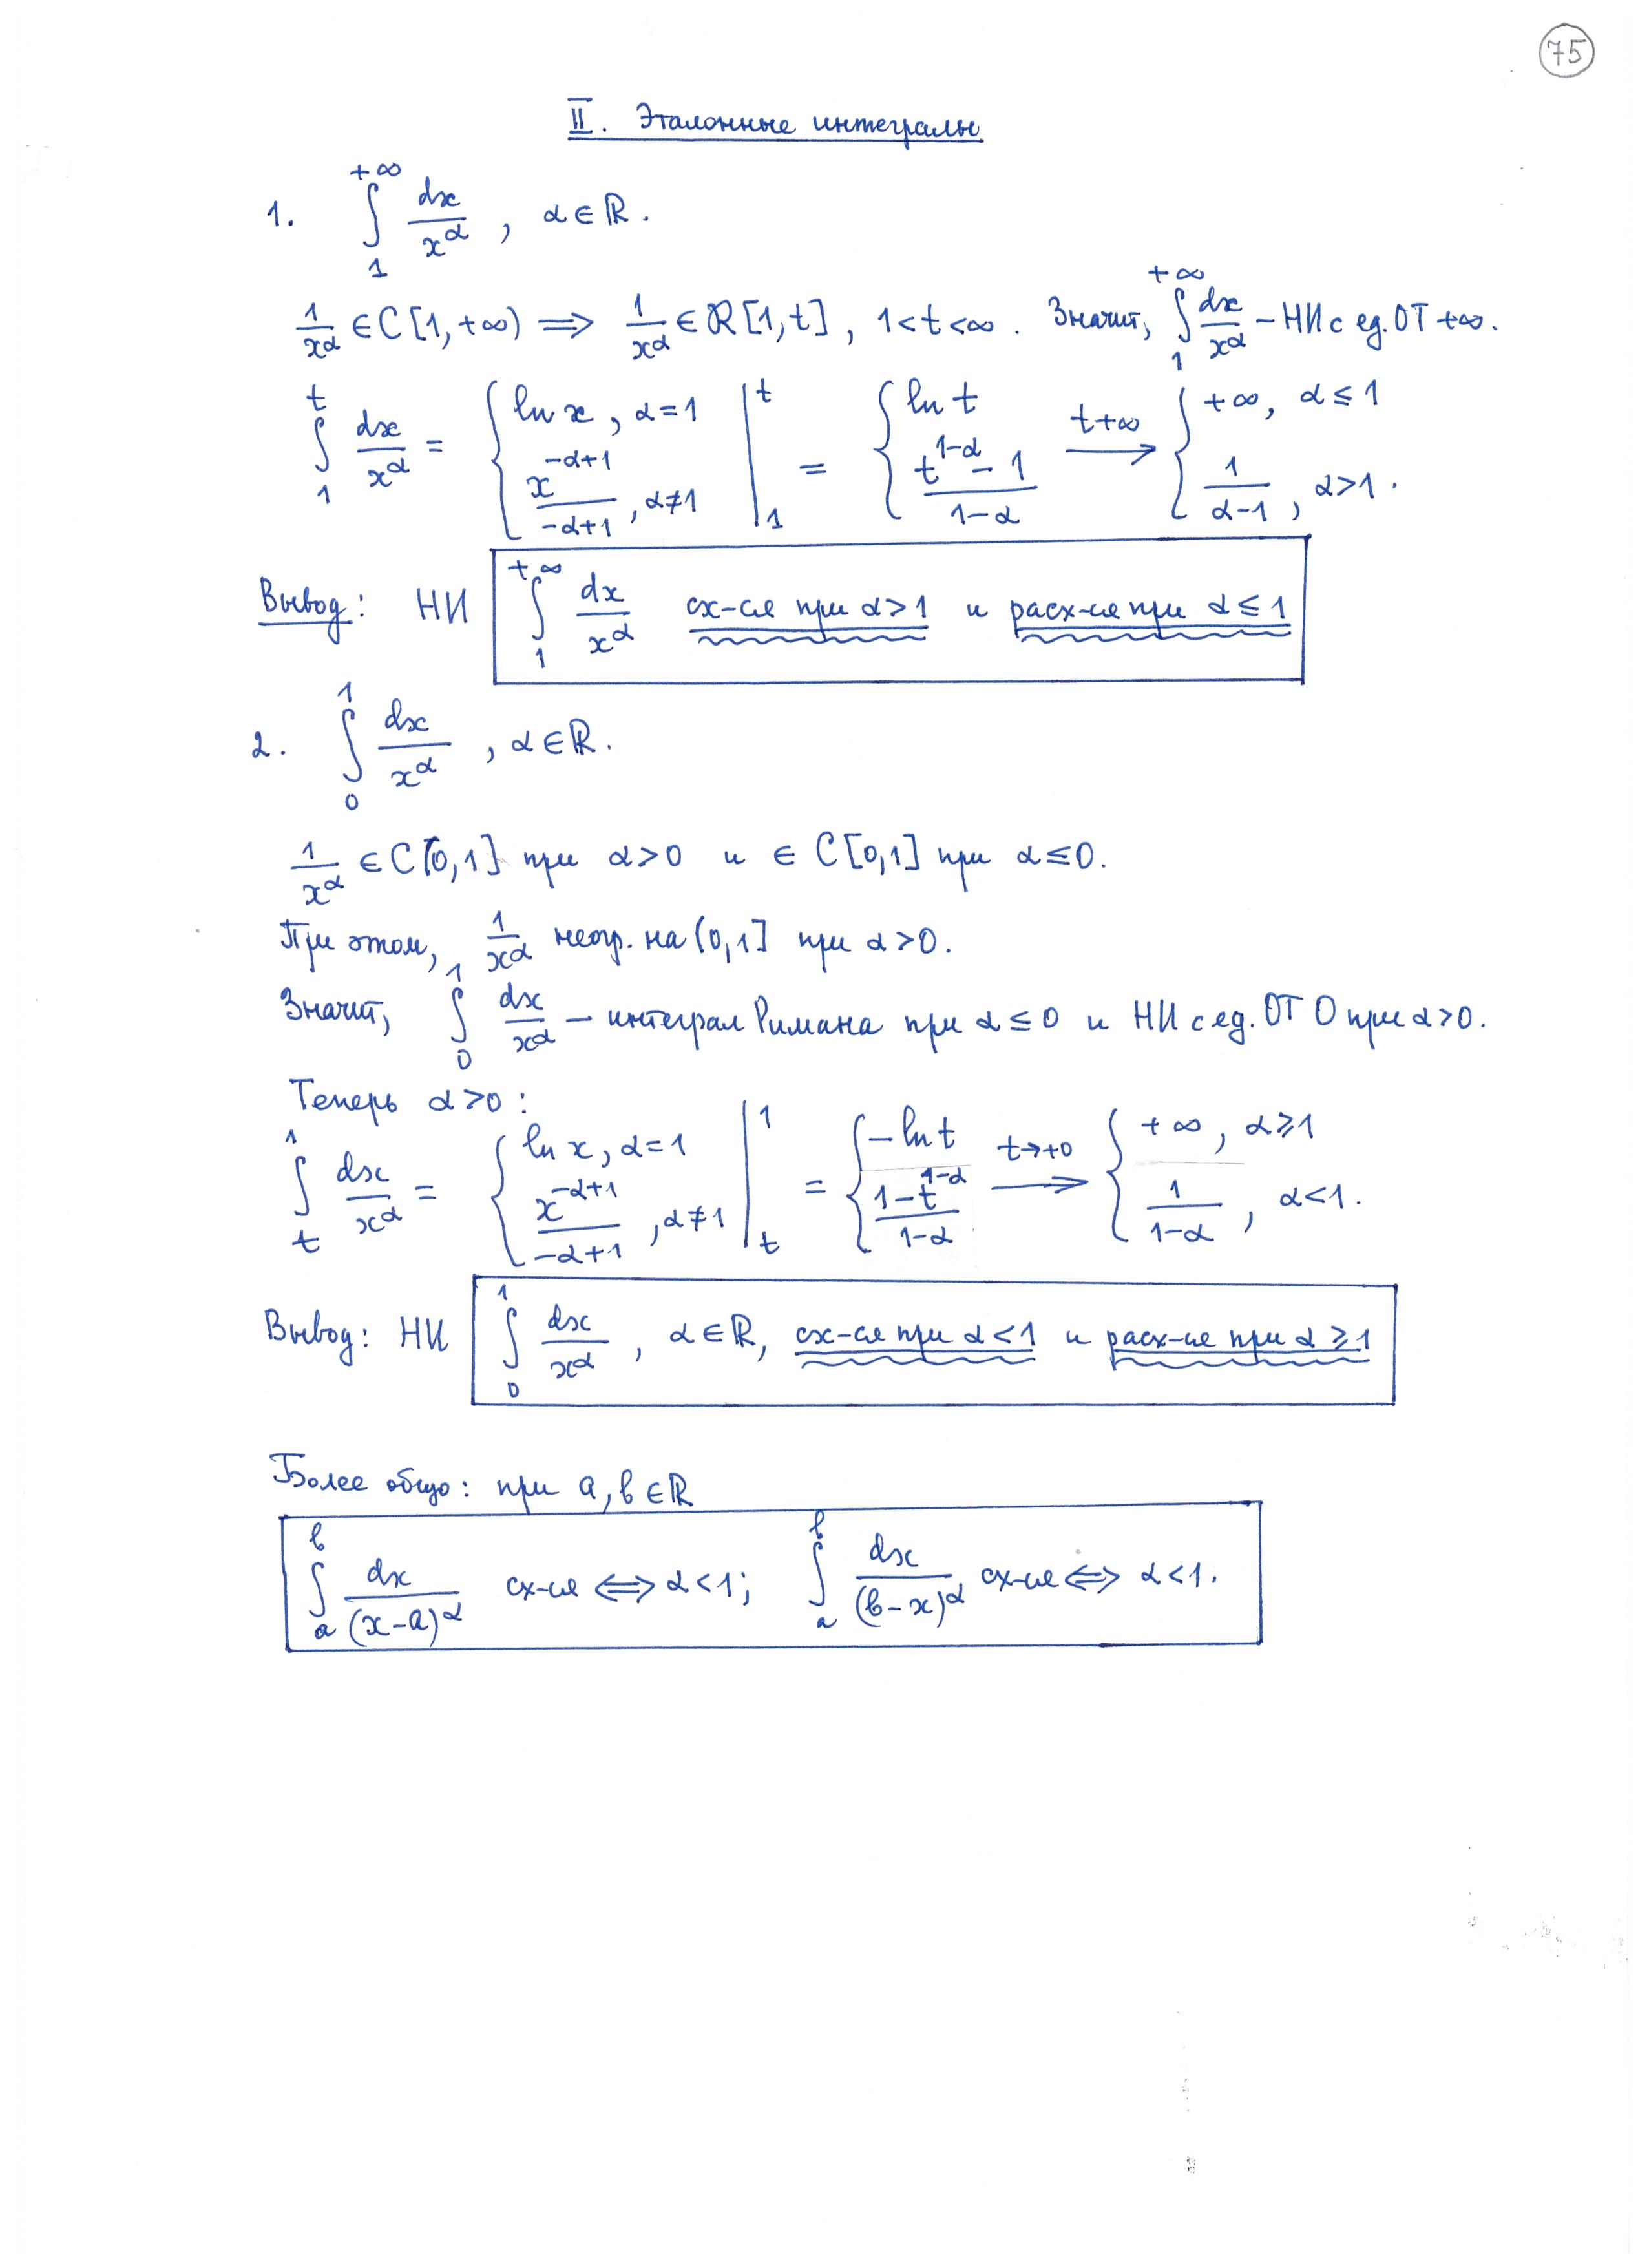 75
II. Эталонные интегралы
1. ∫₁^{+∞} dx/x^α, α∈ℝ.
1/x^α ∈ C[1,+∞) ⟹ 1/x^α ∈ ℛ[1,t], 1<t<∞. Значит, ∫₁^{+∞} dx/x^α – НИ с ед. ОТ +∞.
∫₁^t dx/x^α = { ln x, α=1; x^{-α+1}/(-α+1), α≠1 |₁^t = { ln t; (t^{1-α} - 1)/(1-α) →^{t+∞} { +∞, α≤1; 1/(α-1), α>1.
Вывод: НИ ∫₁^{+∞} dx/x^α сх-ся при α>1 и расх-ся при α≤1
2. ∫₀^1 dx/x^α, α∈ℝ.
1/x^α ∈ C(0,1] при α>0 и ∈ C[0,1] при α≤0.
При этом, 1/x^α неогр. на (0,1] при α>0.
Значит, ∫₀^1 dx/x^α – интеграл Римана при α≤0 и НИ с ед. ОТ 0 при α>0.
Теперь α>0:
∫_t^1 dx/x^α = { ln x, α=1; x^{-α+1}/(-α+1), α≠1 |_t^1 = { -ln t; (1-t^{1-α})/(1-α) →^{t→+0} { +∞, α≥1; 1/(1-α), α<1.
Вывод: НИ ∫₀^1 dx/x^α, α∈ℝ, сх-ся при α<1 и расх-ся при α≥1
Более общо: при a, b∈ℝ
∫_a^b dx/(x-a)^α сх-ся ⟺ α<1; ∫_a^b dx/(b-x)^α сх-ся ⟺ α<1.